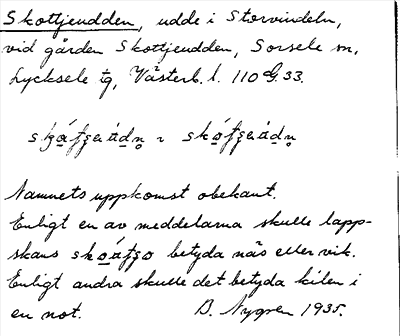 Skottjeudden, udde i Storvindeln,
vid gården Skottjeudden, Sorsele sn,
Lycksele tg, Västerb. l. 110 G. 33.
Namnets uppkomst obekant.
Enligt en av meddelarna skulle lapp-
skans betyda näs eller vik.
Enligt andra skulle det betyda kilen i
en not. B. Nygren 1935.